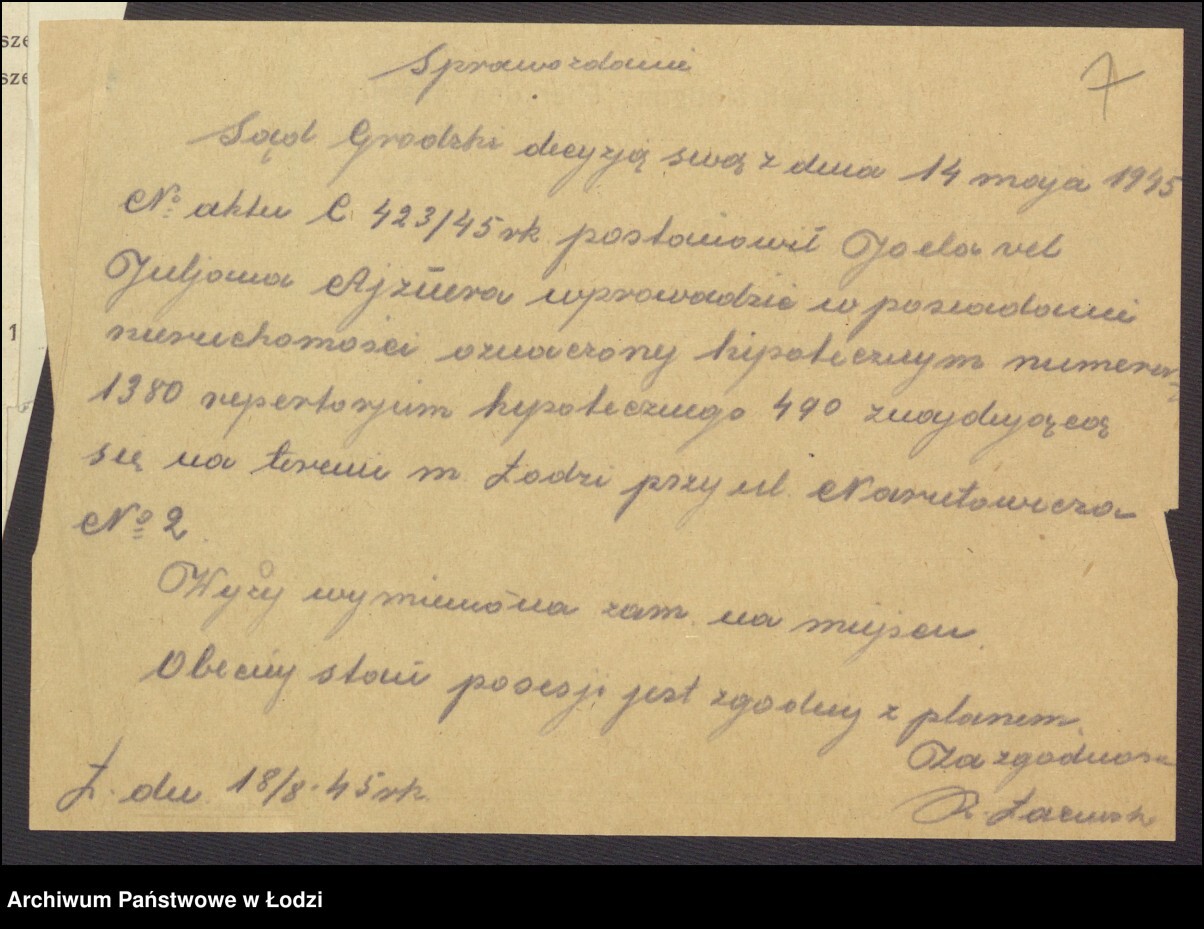 sze
sze
1
7
Sprawozdanie
Sąd Grodzki decyzją swą z dnia 14 maja 1945
№ aktu C 423/45 rk. postanowił Joela vel
Juljana wprowadzić w posiadanie
nieruchomości oznaczony hipotecznym numerem
1380 repertorjum hypotecznego 490 znajdującą
się na terenie m. Łodzi przy ul. Narutowicza
№ 2.
Wyży wymieniona zam. na miejscu.
Obecny stan posesji jest zgodny z planem.
Za zgodność
Ł. dn. 18/8.45 rk.
R.
Archiwum Państwowe w Łodzi